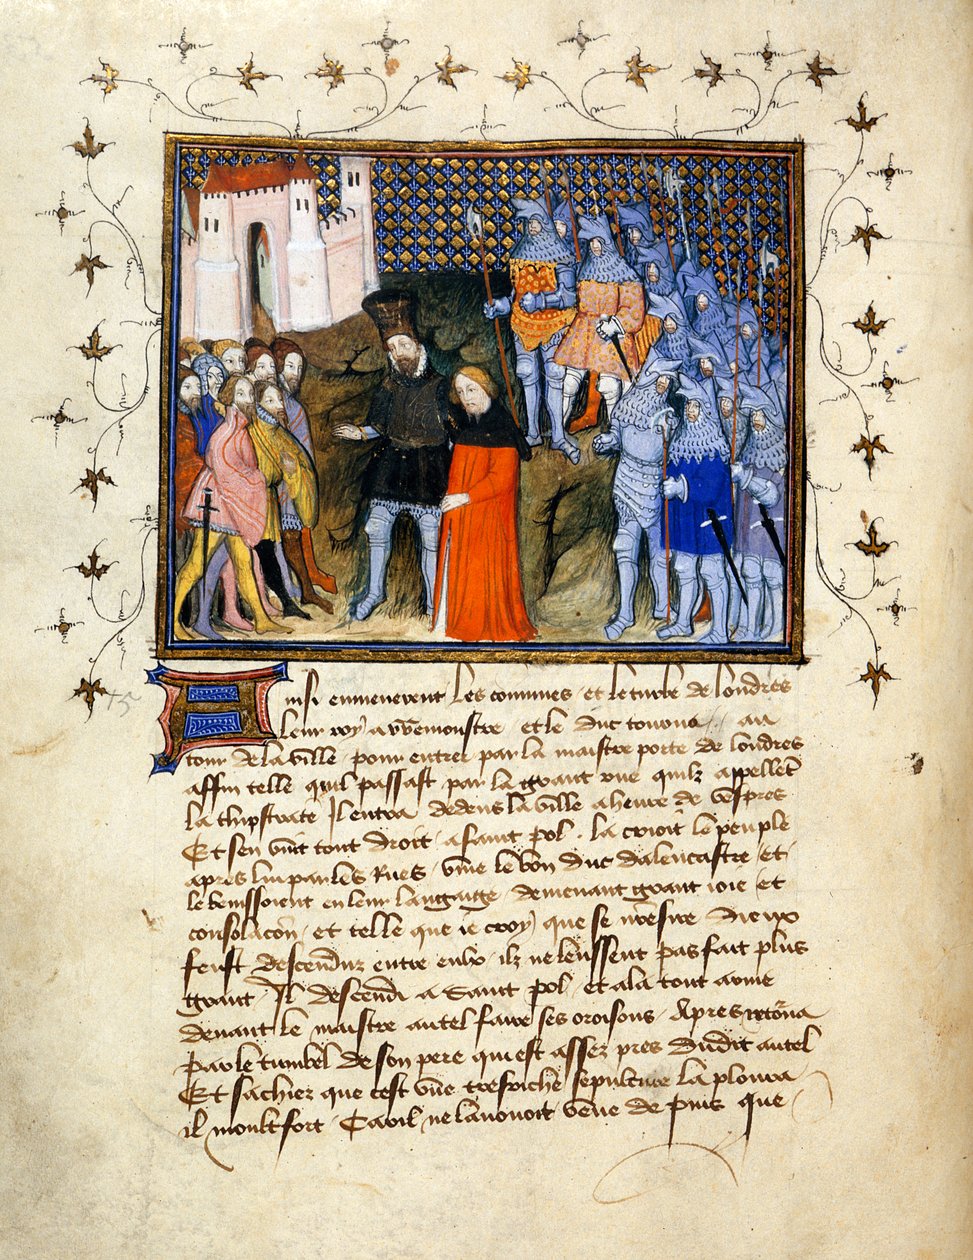 Ainsi enmenerent les commes et le turbe de londres
leur roy a westmonstre et le duc tourna au
tour de la ville pour entrer par la maistre porte de londres
affin telle quil passast par la grant rue quilz appellent
la chipstrate Il entra dedens la ville a heure de vespres
Et sen vint tout droit a saint pol la crioit le peuple
apres lui par les rues vive le bon duc dalencastre et
le benissoient en leur langaige demenant grant ioie et
consolacon et telle que ie croy que se nre sire dieux
feust descendu entre eulx ilz ne leussent pas fait plus
grant Il descendi a saint pol et ala tout arme
devant le maistre autel faire ses oroisons Apres retorna
par le tumbel de son pere qui est assez pres dudit autel
Et sachiez que cest une tresriche sepulture la ploura
il moult fort Car il ne lavoit veue de puis que